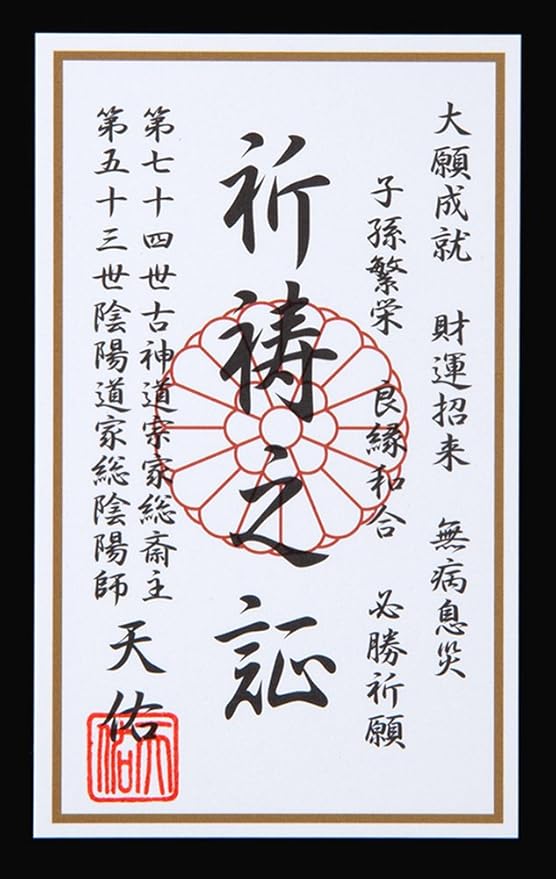 大願成就　財運招来　無病息災
子孫繁栄　良縁和合　必勝祈願
祈祷之証
第七十四世古神道宗家総斎主
第五十三世陰陽道家総陰陽師
天佑
天佑